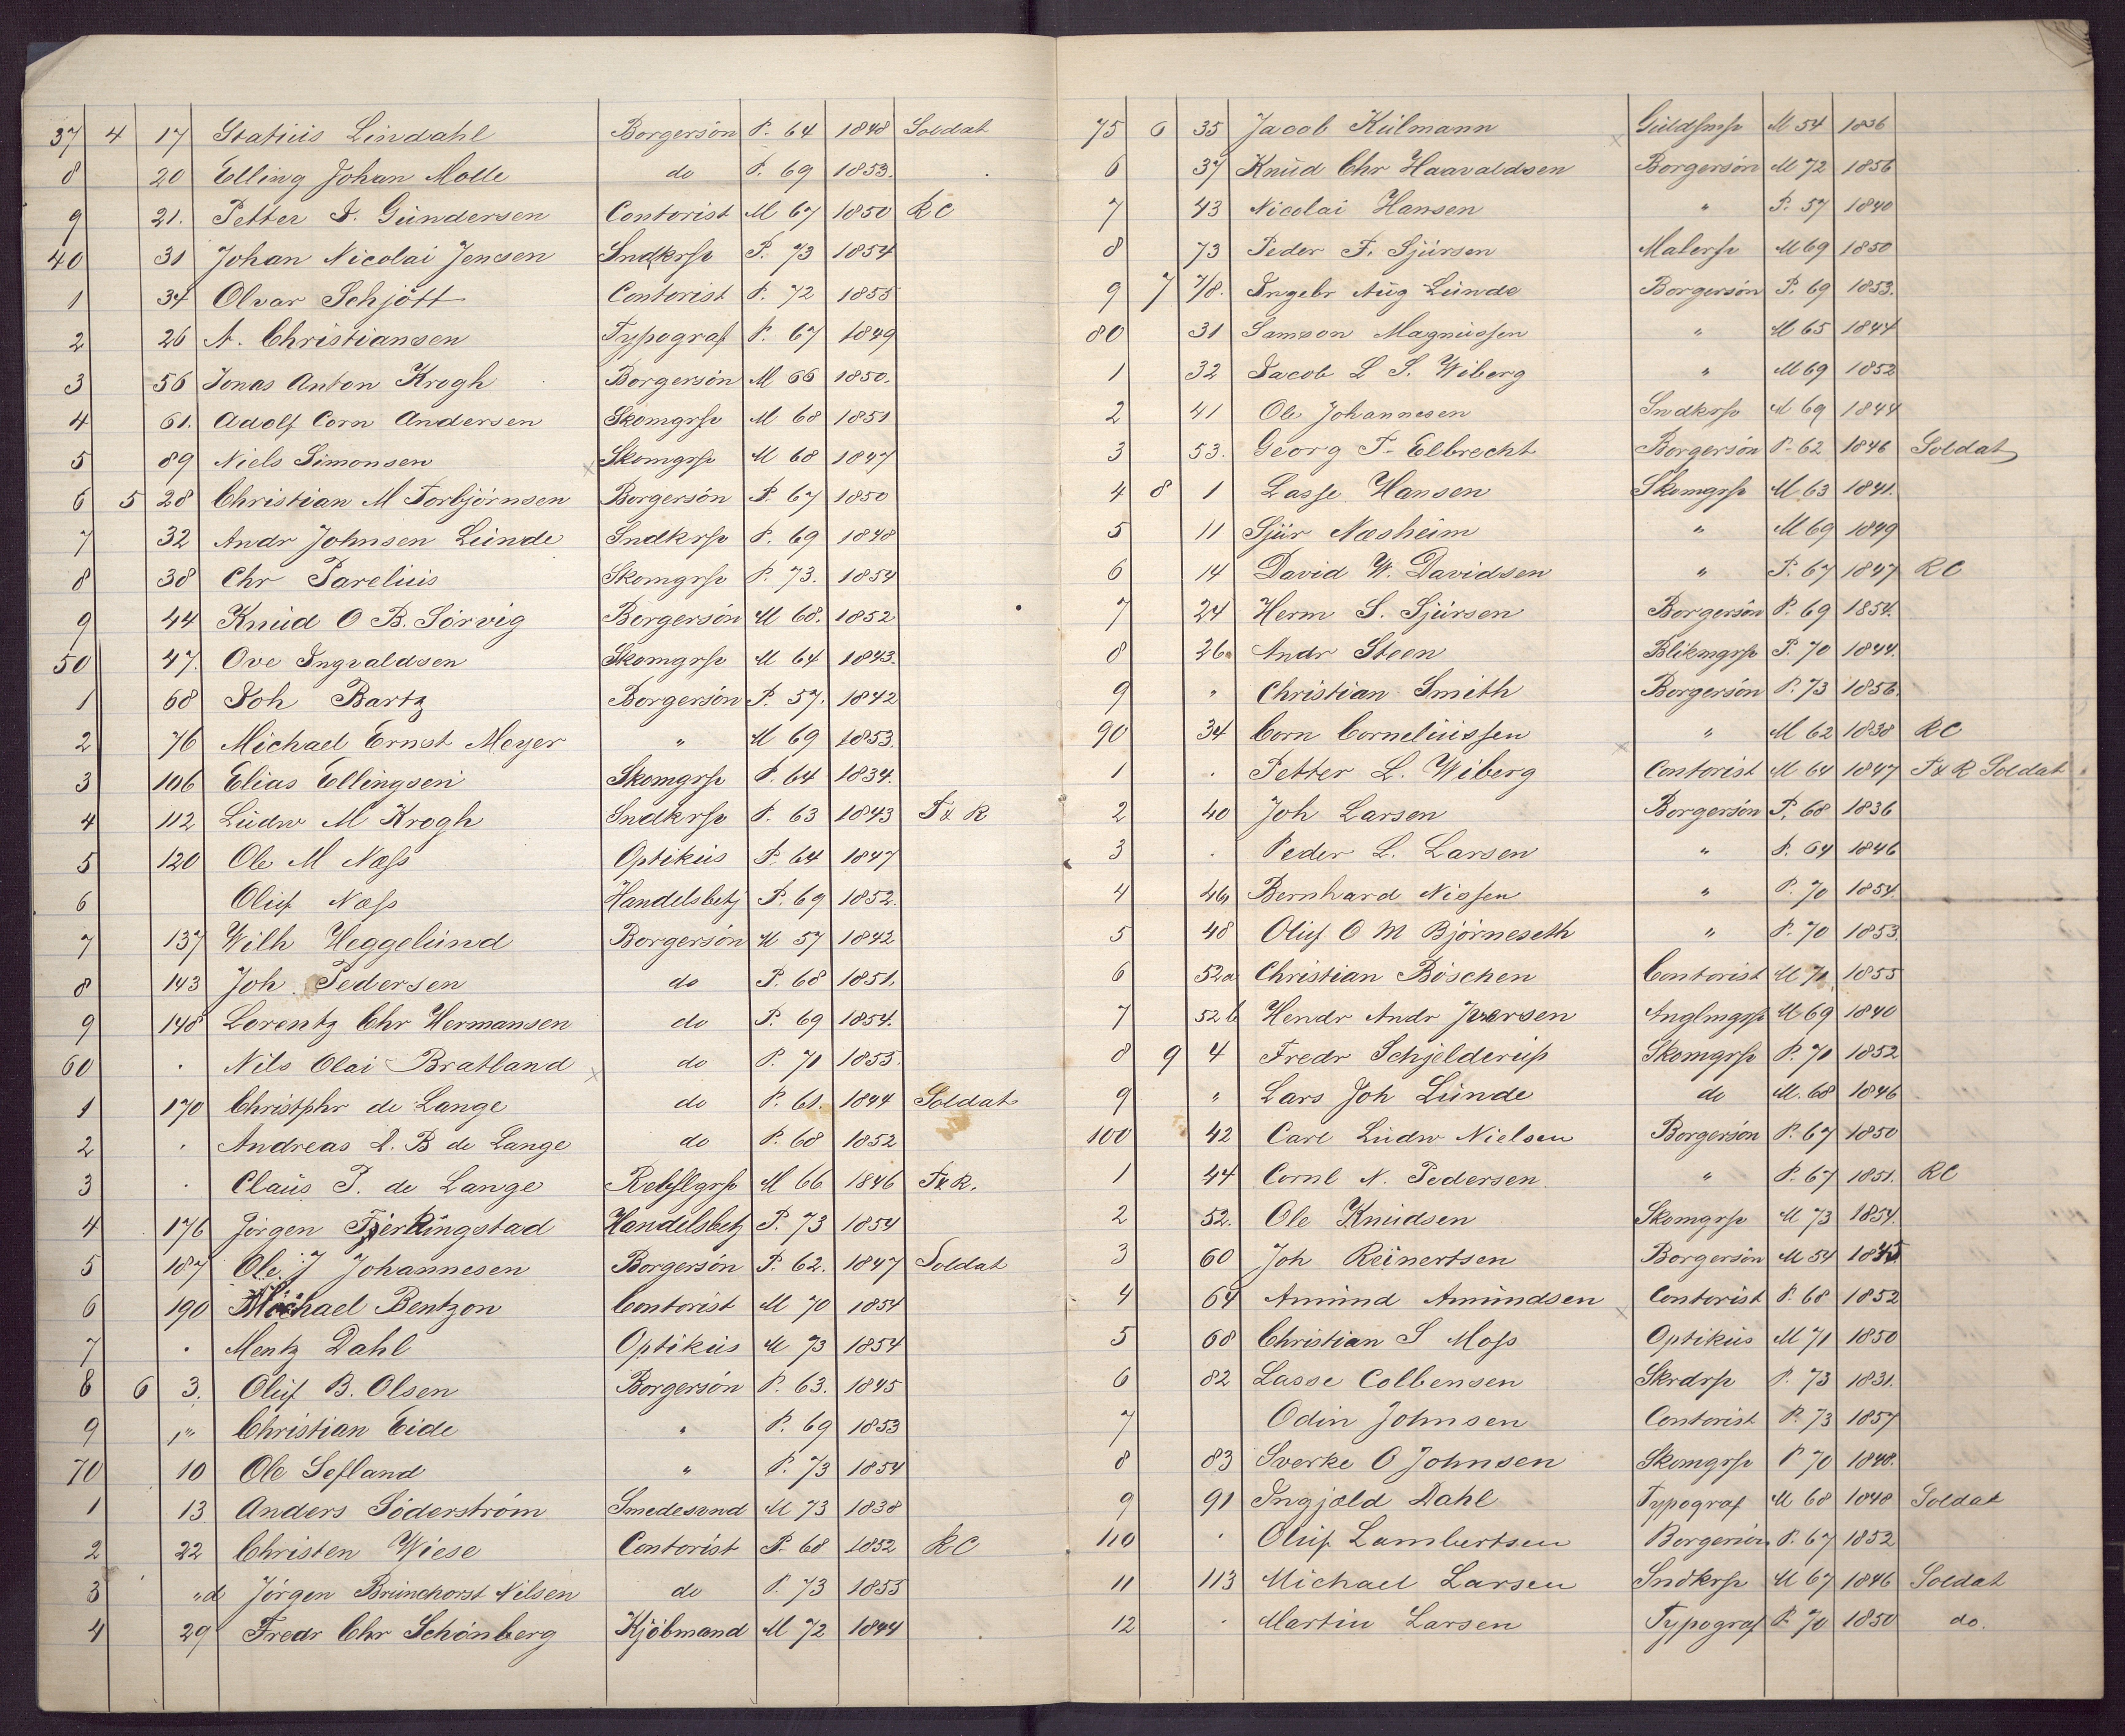 37 4 17 Statius Lindahl Borgersön P. 64 1848 Soldat
8 20 Elling Johan Molle do P. 69 1853.
9 21. Petter J. Gundersen Contorist M 67 1850 RC
40 31 Johan Nicolai Jensen Sndkrsv P. 73 1854
1 34 Olvar Schjött Contorist P. 72 1855
2 26 A. Christiansen Typograf P. 67 1849
3 56 Jonas Anton Krogh Borgersön M 66 1850.
4 61. Adolf Corn Andersen Skomgrsv M 68 1851
5 89 Niels Simonsen Skomgrsv M 68 1847
6 5 28 Christian M Torbjörnsen Borgersön P. 67 1850
7 32 Andr Johnsen Lunde Sndkrsv P. 69 1848
8 38 Chr Parelius Skomgrsv P. 73. 1854
9 44 Knud O B. Sörvig Borgersön M 68. 1852
50 47. Ove Ingvaldsen Skomgrsv M 64 1843.
1 68 Joh Bartz Borgersön P. 57. 1842
2 76 Michael Ernst Meyer " M 69 1853.
3 106 Elias Ellingsen Skomgrsv P. 64 1834.
4 112 Ludw M Krogh Sndkrsv P. 63 1843 T & R
5 120 Ole M Næss Optikus P. 64 1847
6 Oluf Næss Handelsbetj P. 69 1852.
7 137 Wilh Heggelund Borgersön M 57 1842
8 143 Joh. Pedersen do P. 68 1851.
9 148 Lorentz Chr Hermansen do P. 69 1854.
60 . Nils Olai Bratland do P. 71 1855.
1 170 Christphr de Lange do P. 61. 1844 Soldat
2 . Andreas L. B de Lange do P. 68 1852
3 . Claus P. de Lange Rebslgrsv M 66 1846 T&R.
4 176 Jörgen Fjerkingstad Handelsbetj P. 73 1854
5 187 Ole J Johannesen Borgersön P. 62. 1847 Soldat
6 190 Michael Bentzon Contorist M 70 1854
7 . Mentz Dahl Optikus M 73 1854
8 6 3. Oluf B. Olsen Borgersön P. 63. 1845
9 " Christian Eide " P. 69 1853
70 10 Ole Sefland " P. 73 1854
1 13 Anders Söderström Smedesvnd M 73 1838
2 22 Christen Wiese Contorist P. 68 1852 RC
3 "d Jörgen Brunchorst Nilsen do P. 73 1855
4 29 Fredr Chr Schönberg Kjöbmand M 72 1844
75 6 35 Jacob Kulmann Guldsmsv M 54 1836
6 37 Knud Chr Haavaldsen Borgersön M 72 1856
7 43 Nicolai Hansen " P. 57 1840
8 73 Peder F. Sjursen Malersv M 69 1850
9 7 7/8. Ingebr Aug Lunde Borgersön P. 69 1853.
80 31 Samson Magnussen " M 65 1844
1 32 Jacob L S. Wiberg " M 69 1852
2 41 Ole Johannesen Sndkrsv M 69 1844
3 53. Georg F. Elbrecht Borgersön P. 62 1846 Soldat
4 8 1 Lasse Hansen Skomgrsv M 63 1841.
5 11 Sjur Næsheim " M 69 1849
6 14 David W. Davidsen " P. 67 1847 RC
7 24 Herm S. Sjursen Borgersön P. 69 1854.
8 26a Andr Steen Blikmgrsv P. 70 1844.
9 " Christian Smith Borgersön P. 73 1856.
90 34 Corn Corneliussen " M 62 1838 RC
1 . Petter L. Wiberg Contorist M 64 1847 T&R Soldat
2 40 Joh Larsen Borgersön P. 68 1836
3 . Peder L. Larsen " P. 64 1846
4 46 Bernhard Nissen " P. 70 1854.
5 48 Oluf O M Björneseth " P. 70 1853.
6 52a Christian Böschen Contorist M 71 1855
7 52b Hendr Andr Iversen M 69 1840
8 9 4 Fredr Schjelderup Skomgrsv P. 71 1852
9 " Lars Joh Lunde do M. 68 1846
100 42 Carl Ludw Nielsen Borgersön P. 67 1850
1 44 Cornl N. Pedersen " P. 67 1851. RC
2 52. Ole Knudsen Skomgrsv M 73 1854.
3 60 Joh Reinertsen Borgersön M 54
4 64 Amund Amundsen Contorist P. 68 1852
5 68 Christian S Moss Optikus M 71 1850
6 82 Lasse Colbensen Skrdrsv P. 73 1831.
7 Odin Johnsen Contorist P. 73 1857
8 83 Sverke O Johnsen Skomgrsv P 70 1848.
9 91 Ingjæld Dahl Typograf M 68 1848 Soldat
110 . Oluf Lambertsen Borgersön P. 67 1852
11 113 Michael Larsen Sndkrsv M 67 1846 Soldat
12 . Martin Larsen Typograf P. 70 1850 do.